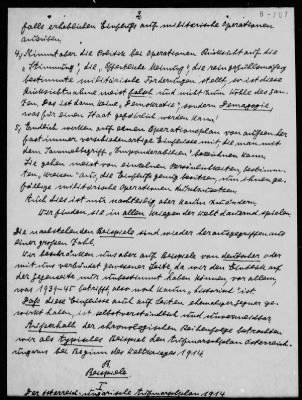 2
B-107
falls erheblichen Einfluss auf militärische Operationen
ausüben.
4.) Nimmt aber die Politik bei Operationen Rücksicht auf die
"Stimmung", die "öffentliche Meinung", die rein gefühlsmässig
bestimmte militärische Forderungen stellt, so ist diese
Rücksichtnahme meist falsch und nicht zum Wohle des Gan-
zen. Das ist dann keine "Demokratie", sondern Demagogie,
was für einen Staat gefährlich werden kann!
5.) Endlich wirken auf jeden Operationsplan von aussen her
fast immer verschiedenartige Einflüsse mit, die man mit
dem Sammelbegriff "Imponderabilien" bezeichnen kann.
Sie gehen meist von einzelnen Persönlichkeiten, bestimm-
ten "Kreisen" aus, die Einfluss genug besitzen, um ihnen ge-
fällige militärische Operationen
Auch dies ist nur nachteilig aber kaum zu ändern.
Wir finden sie in allen Kriegen der Welt dauernd spielen.
Die nachstehenden Beispiele sind wieder herausgegriffen aus
einer großen Zahl.
Wir beschränken uns aber auf Beispiele von deutscher oder
mit uns verbündet gewesener Seite, da wir den Einfluss auf
der Gegenseite nur unbestimmt haben können, vor allem,
was 1939-45 betrifft, also noch kaum "historisch" ist.
Daß diese Einflüsse auch auf Seiten ehemaliger Gegner ge-
wirkt haben, ist selbstverständlich und unvermeidbar.
Außerhalb der chronologischen Reihenfolge betrachten
wir als typisches Beispiel den Aufmarschplan Österreich-
Ungarns bei Beginn des Weltkrieges 1914
B
Beispiele
I
Der österreich-ungarische Aufmarschplan 1914